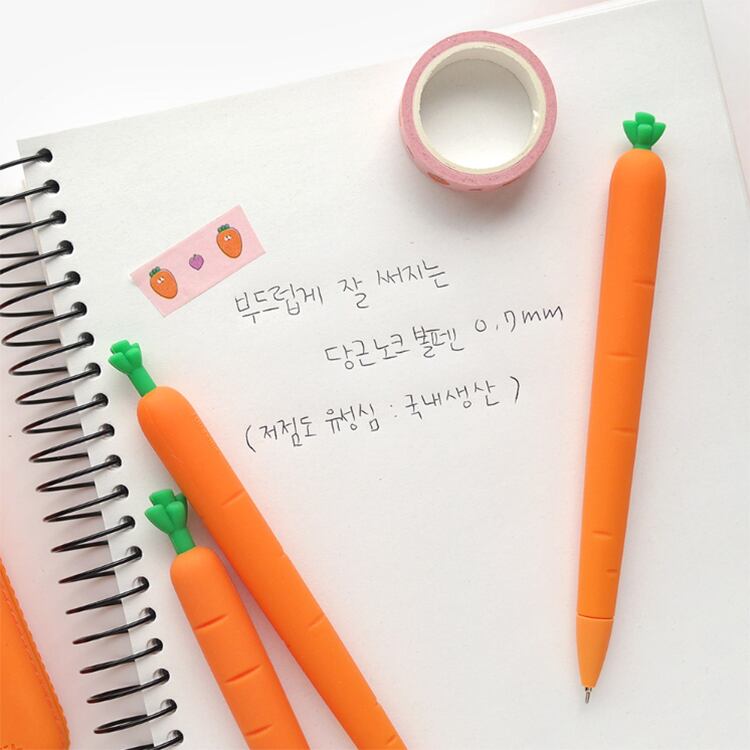 부드럽게 잘 써지는
당근노크 볼펜 0.7mm
(저점도 유성심 : 국내생산)